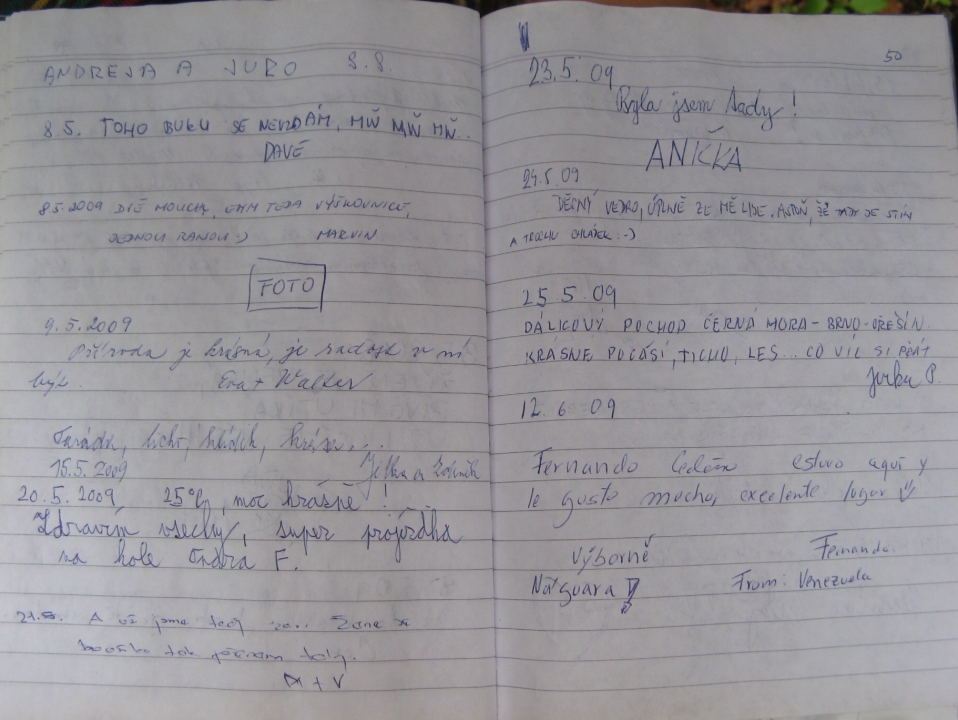 ANDREJA A JURO 8.8.
8.5. TOHO BUKU SE NEVZDÁM, MŇ MŇ MŇ
DAVE
8.5.2009 DVĚ MOUCHY, TEDA VÝŠKOVNICE,
JEDNOU RANOU :-) MARVIN
FOTO
9.5.2009
Příroda je krásná, je radost v ní
být. Eva + Walter
ticho, klídek, krása...
15.5.2009 Jitka a Zdeněk
20.5.2009 25°C, moc krásně!
Zdravím všechny, super projížďka
na kole F.
21.5. A už jsme tady zas.
M + V
50
23.5.09
Byla jsem tady!
ANIČKA
24.5.09
DĚSNÝ VEDRO, ÚPLNĚ ZE MĚ LIJE. ASPOŇ, ŽE TADY JE STÍN
A TROCHU CHLÁDEK :-)
25.5.09
DÁLKOVÝ POCHOD ČERNÁ HORA - BRNO-OŘEŠÍN.
KRÁSNÉ POČASÍ, TICHO, LES... CO VÍC SI PŘÁT
Jirka P.
12.6.09
Fernando Cedeño estuvo aquí y
le gusto mucho, excelente lugar
Výborně Fernando.
From: Venezuela